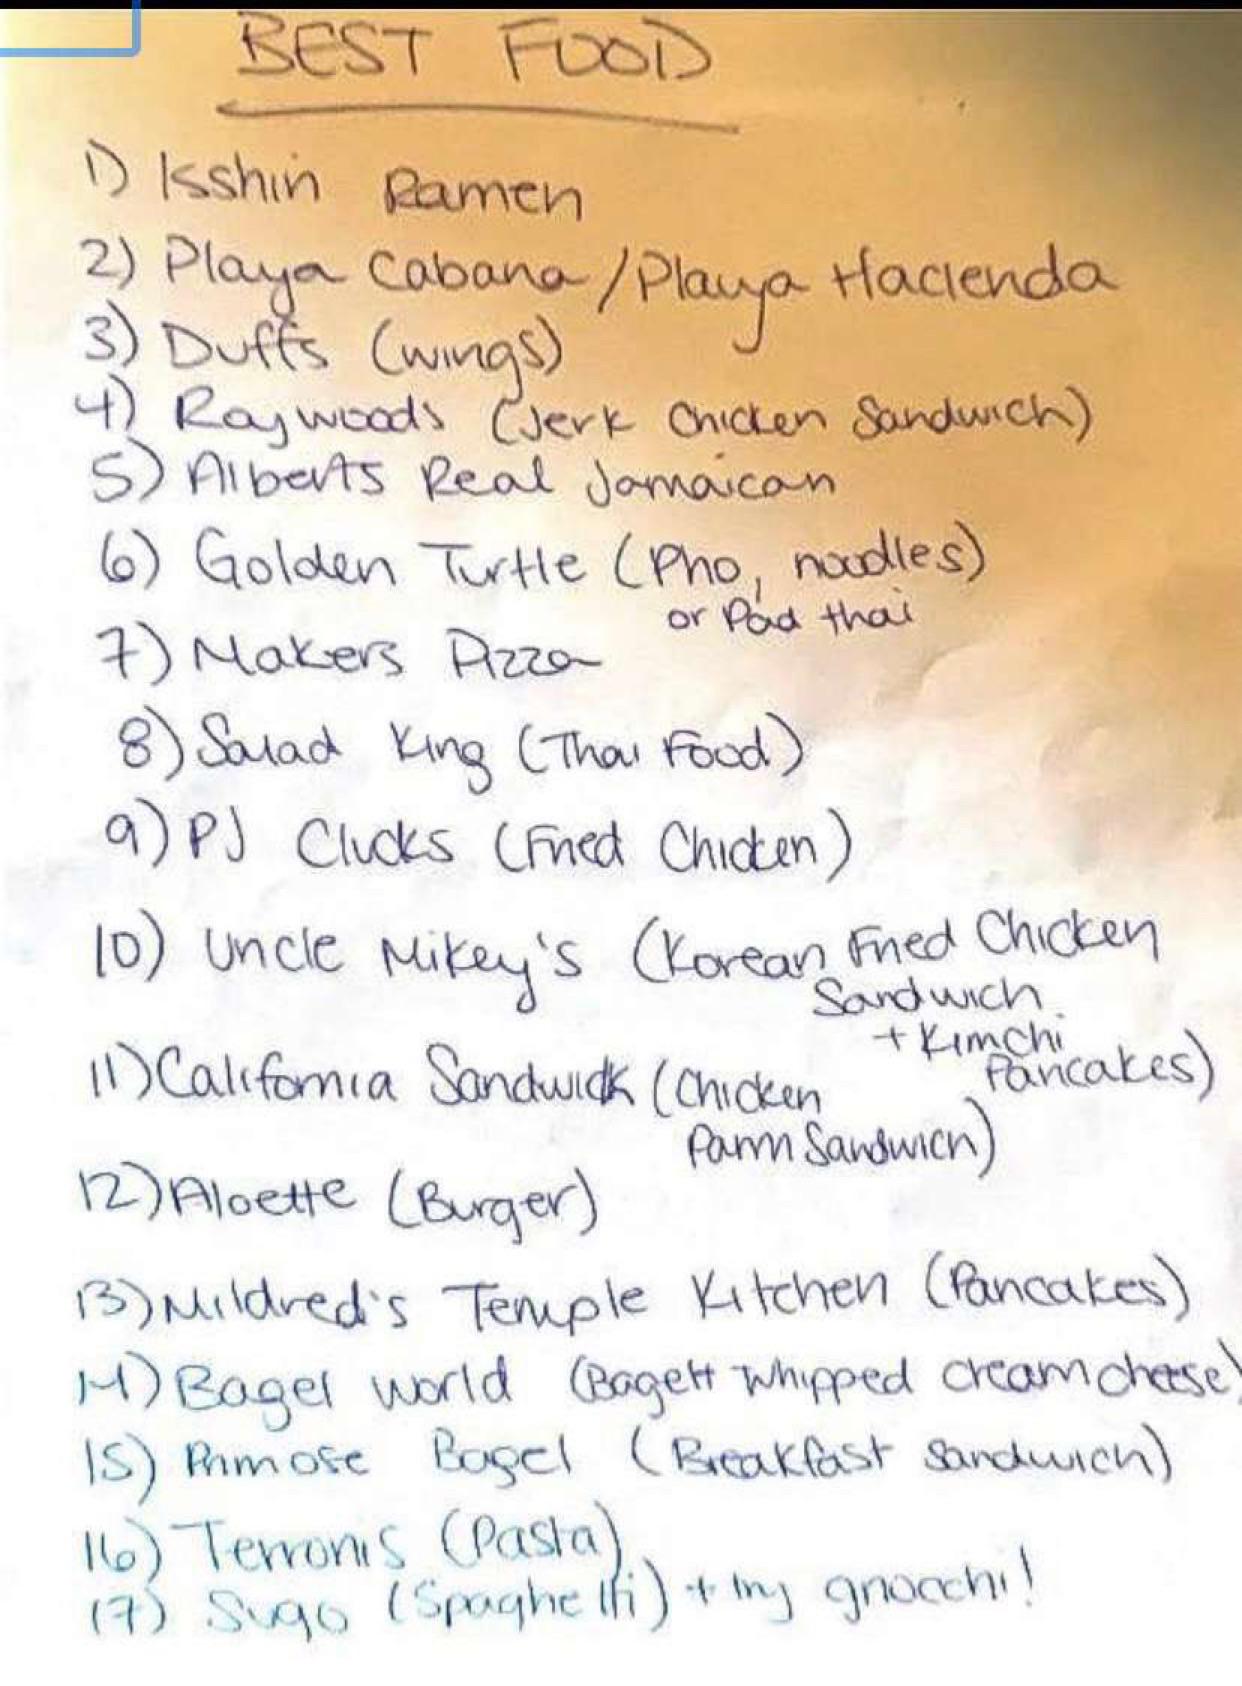 BEST FOOD
1) Isshin Ramen
2) Playa Cabana / Playa Hacienda
3) Duffs (wings)
4) Raywoods (Jerk Chicken Sandwich)
5) Alberts Real Jamaican
6) Golden Turtle (Pho, noodles)
or Pad thai
7) Makers Pizza
8) Salad King (Thai Food)
9) PJ Clucks (Fried Chicken)
10) Uncle Mikey's (Korean Fried Chicken
Sandwich
+ Kimchi
Pancakes)
11) California Sandwich (Chicken
Parm Sandwich)
12) Aloette (Burger)
13) Mildred's Temple Kitchen (Pancakes)
14) Bagel World (Bagel + Whipped cream cheese)
15) Primose Bagel (Breakfast sandwich)
16) Terronis (Pasta)
17) Sugo (Spaghetti) + try gnocchi!